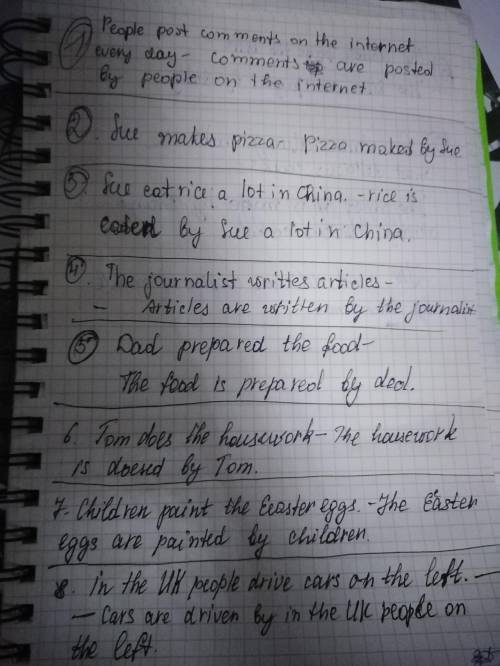 1 People post comments on the internet
every day - comments are posted
by people on the internet.
2. Sue makes pizza - Pizza maked by Sue
3. Sue eat rice a lot in China. - rice is
eaten by Sue a lot in China.
4. The journalist writtes articles -
- Articles are written by the journalist
5 Dad prepared the food -
The food is prepared by dad.
6. Tom does the housework - The housework
is doened by Tom.
7. Children paint the Easter eggs. - The Easter
eggs are painted by children.
8. In the UK people drive cars on the left. -
- Cars are driven by in the UK people on
the left.